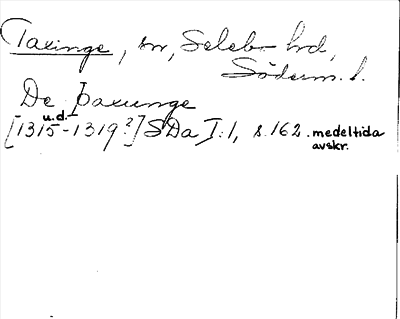 Taxinge, sn, Selebo hd,
Söderm. l.
De þaxunge
u.d.
[1315-1319?] SDa I:1, s. 162. medeltida
avskr.